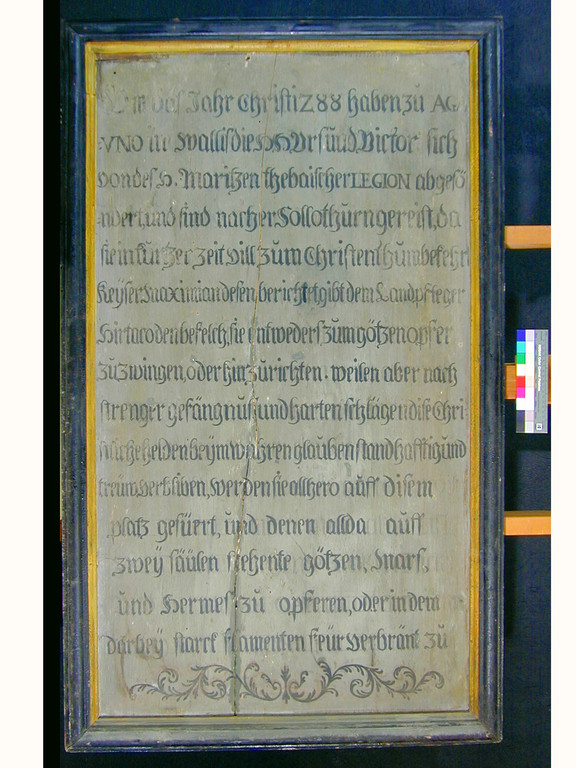 das Jahr Christi Z88 haben zu AG
VNO in Wallis die H.H. Urs und Victor sich
von des H. Maritzen thebaischer LEGION abgesö
ndert, und sind nacher Sollothurn gereist, da
sie in kurtzer zeit vill zum Christenthum bekehrt
Keyser Maximian desen berichtet gibt dem Landpfleger
Hirtaco den befelch, sie entweders zum götzenopfer
zu zwingen, oder hinzurichten. weilen aber nach
strenger gefängnuß und harten schlägen dise Chri
stliche helden beÿm wahren glauben standhafftig und
treüw verbliben, werden sie allhero auff disem
platz gefüert, und denen allda auff
zweÿ säülen stehente götzen, Mars,
und Hermes zu opferen, oder in dem
darbeÿ starck flamenten feür verbränt zu